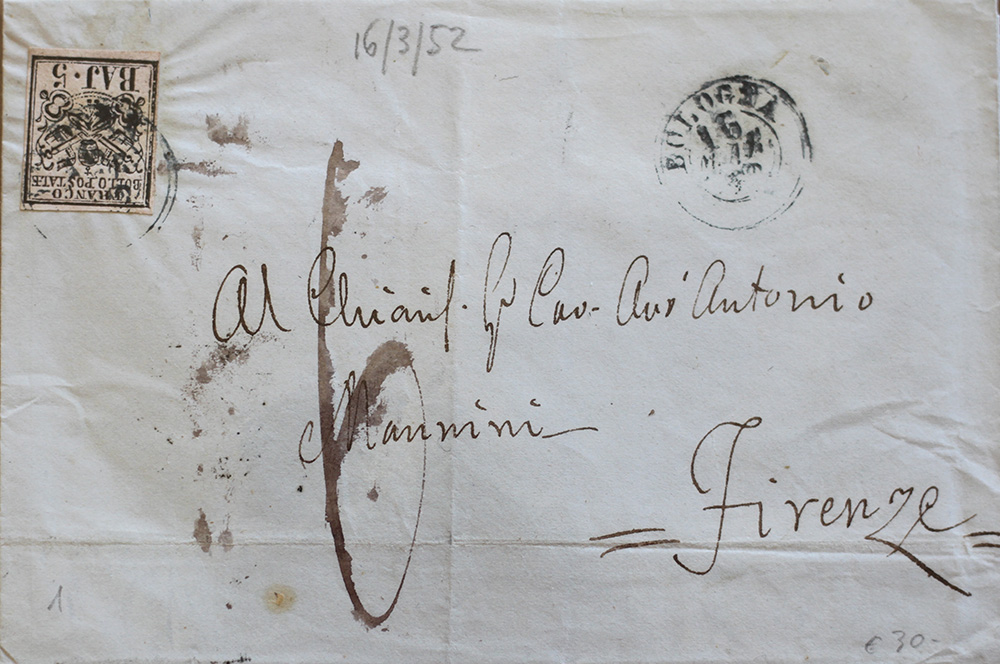 16/3/52
BAJ. 5
FRANCO
BOLLO POSTALE
BOLOGNA
Al Chiaris. Sig. Cav. Avv. Antonio
Mannini
Firenze
6
1
€ 30-